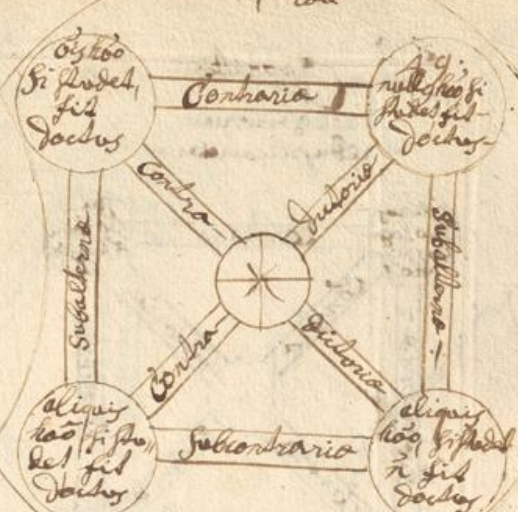 õis hõo
si studet,
fit
doctus
Contraria
nullus hõo si
studet fit
doctus
Contra
dictoria
Subalterna
Subalterna
Contra
dictoria
aliquis
hõo, si stu,,
det fit
doctus
Subcontraria
aliquis
hõo, si studet
ñ fit
doctus